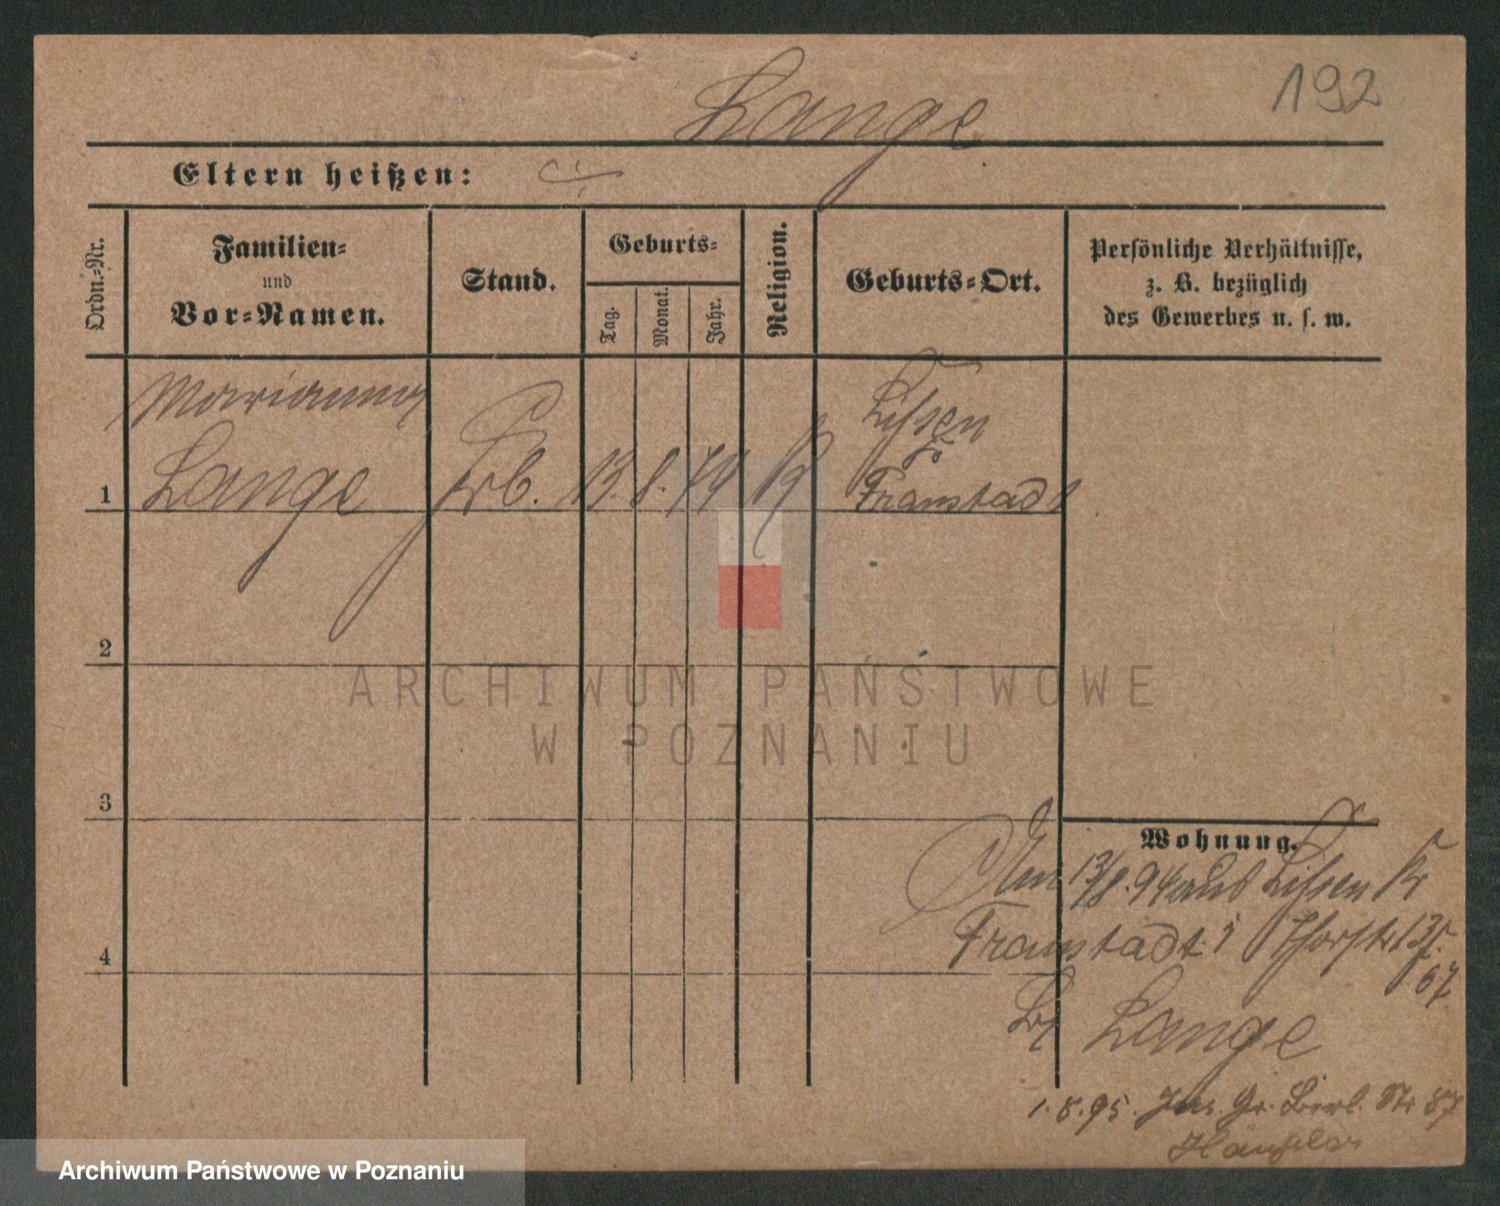 192
Lange
Eltern heißen:
Ordn.-Nr.
Familien-
und
Vor-Namen.
Stand.
Geburts-
Tag.
Monat.
Jahr.
Religion.
Geburts-Ort.
Persönliche Verhältnisse,
z. B. bezüglich
des Gewerbes u. s. w.
Marianna
1 Lange 13. 8. 74
Lissen
Kr
Fraustadt
2
3
4
Wohnung.
13/8. 94 aus Lissen Kr
Fraustadt
Bei Lange
1. 8. 95. Gr. Berl. Str 87
ARCHIWUM PAŃSTWOWE
W POZNANIU
Archiwum Państwowe w Poznaniu